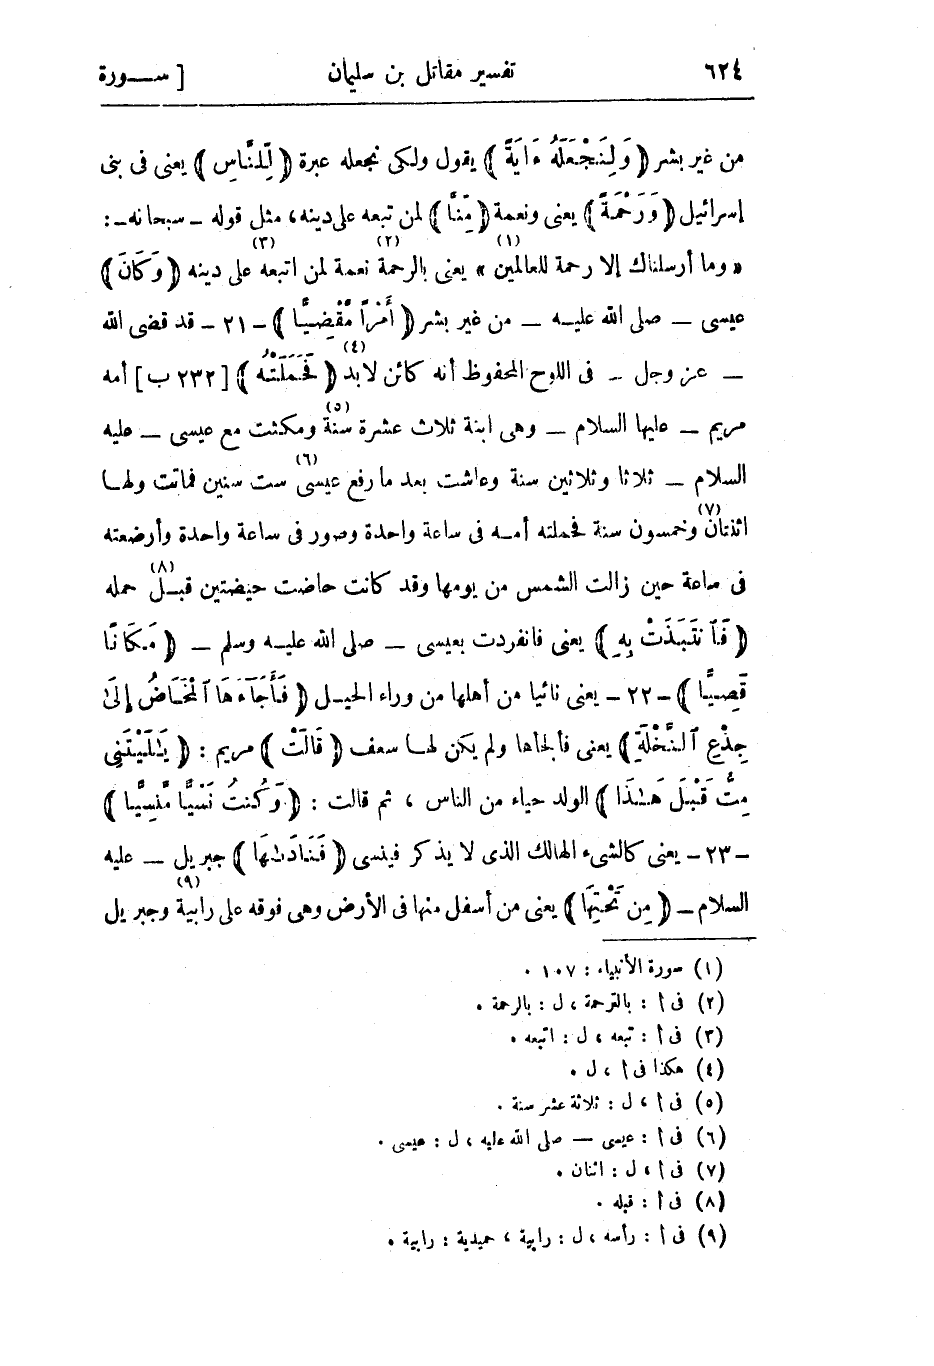 ٦٢٤ تفسير مقاتل بن سليمان [ ســورة
من غير بشر ﴿ وَلِنَجْعَلَهُ ءَايَةً ﴾ يقول ولكى نجعله عبرة ﴿ لِّلنَّاسِ ﴾ يعنى فى بنى
إسرائيل ﴿ وَرَحْمَةً ﴾ يعنى ونعمة ﴿ مِّنَّا ﴾ لمن تبعه على دينه، مثل قوله ـ سبحانه ـ :
« وما أرسلناك إلا رحمة للعالمين (١) » يعنى بالرحمة (٢) نعمة لمن اتبعه (٣) على دينه ﴿ وَكَانَ ﴾
عيسى ــ صلى الله عليــه ــ من غير بشر ﴿ أَمْرًا مَّقْضِيًّا ﴾ ـ ٢١ ـ قد قضى الله
ــ عز وجل ــ فى اللوح المحفوظ أنه كائن لابد (٤) ﴿ فَحَمَلَتْهُ ﴾ [ ٢٣٢ ب ] أمه
مريم ــ عليها السلام ــ وهى ابنة ثلاث عشرة سنة (٥) ومكثت مع عيسى ــ عليه
السلام ــ ثلاثا وثلاثين سنة وعاشت بعد ما رفع عيسى (٦) ست سنين فماتت ولهـا
اثنتان (٧) وخمسون سنة فحملته أمـه فى ساعة واحدة وصور فى ساعة واحدة وأرضعته
فى ساعة حين زالت الشمس من يومها وقد كانت حاضت حيضتين قبـل (٨) حمله
﴿ فَٱنتَبَذَتْ بِهِ ﴾ يعنى فانفردت بعيسى ــ صلى الله عليــه وسلم ــ ﴿ مَكَانًا
قَصِيًّا ﴾ ـ ٢٢ ـ يعنى نائيا من أهلها من وراء الحبـل ﴿ فَأَجَآءَهَا ٱلْمَخَاضُ إِلَىٰ
جِذْعِ ٱلنَّخْلَةِ ﴾ يعنى فألجأها ولم يكن لهـا سعف ﴿ قَالَتْ ﴾ مريم : ﴿ يَـٰلَيْتَنِى
مِتُّ قَبْلَ هَـٰذَا ﴾ الولد حياء من الناس ، ثم قالت : ﴿ وَكُنتُ نَسْيًا مَّنسِيًّا ﴾
ـ ٢٣ ـ يعنى كالشىء الهالك الذى لا يذكر فينسى ﴿ فَنَادَىٰهَا ﴾ جبريل ــ عليه
السلام ــ ﴿ مِن تَحْتِهَا ﴾ يعنى من أسفل منها فى الأرض وهى فوقه على رابية (٩) وجبريل
(١) سورة الأنبياء : ١٠٧ .
(٢) فى أ : بالترحمة ، ل : بالرحمة .
(٣) فى أ : تبعه ، ل : اتبعه .
(٤) هكذا فى أ ، ل .
(٥) فى أ ، ل : ثلاثة عشر سنة .
(٦) فى أ : عيسى — صلى الله عليه ، ل : عيسى .
(٧) فى أ ، ل : اثنان .
(٨) فى أ : قبله .
(٩) فى أ : رأسه ، ل : رابية ، حميدية : رابية .